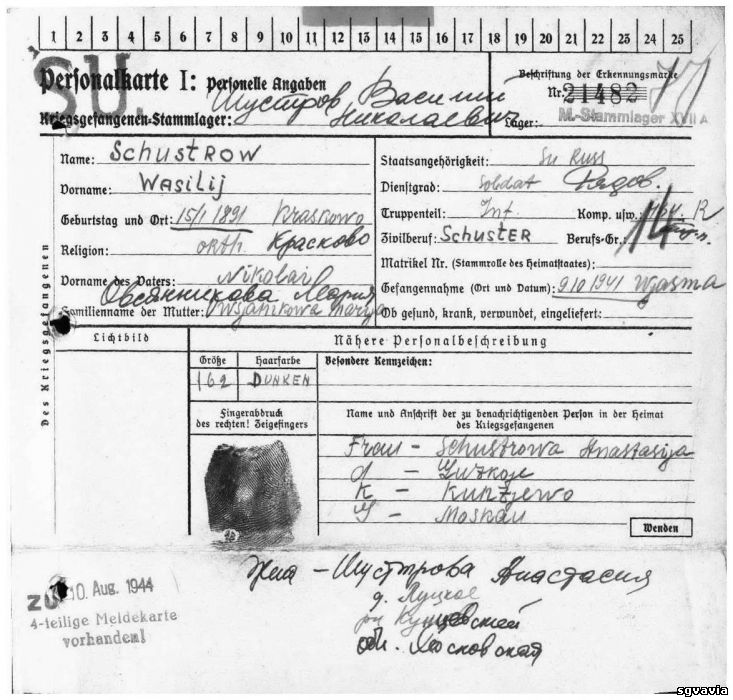 1 2 3 4 5 6 7 8 9 10 11 12 13 14 15 16 17 18 19 20 21 22 23 24 25
SU.
Personalkarte I: Personelle Angaben
Beschriftung der Erkennungsmarke
Шустров Василий
Nr. 21482
Kriegsgefangenen-Stammlager: Николаевич
Lager: M.-Stammlager XVII A
Des Kriegsgefangenen
Name: Schustrow
Vorname: Wasilij
Geburtstag und Ort: 15/1 1891 Kraskowo
Religion: orth. Красково
Vorname des Vaters: Nikolai
Овсянникова Мария
Familienname der Mutter: Marija
Staatsangehörigkeit: Su Russ
Dienstgrad: Soldat Рядов.
Truppenteil: Inf. Komp. usw.: R
Zivilberuf: Schuster Berufs-Gr.: 14
Matrikel Nr. (Stammrolle des Heimatstaates):
Gefangennahme (Ort und Datum): 9.10 1941 Wjasma
Ob gesund, krank, verwundet, eingeliefert:
Lichtbild
Nähere Personalbeschreibung
Größe Haarfarbe Besondere Kennzeichen:
162 Dunken
Fingerabdruck
des rechten! Zeigefingers
Name und Anschrift der zu benachrichtigenden Person in der Heimat
des Kriegsgefangenen
Frau - Schustrowa Anastasija
d - Luzkoje
K - Kunzjewo
G - Moskau
Wenden
Жна - Шустрова Анастасия
д. Луцкое
рн Кунцевский
обл. Московская
ZU 10. Aug. 1944
4-teilige Meldekarte
vorhanden!
sgvavia